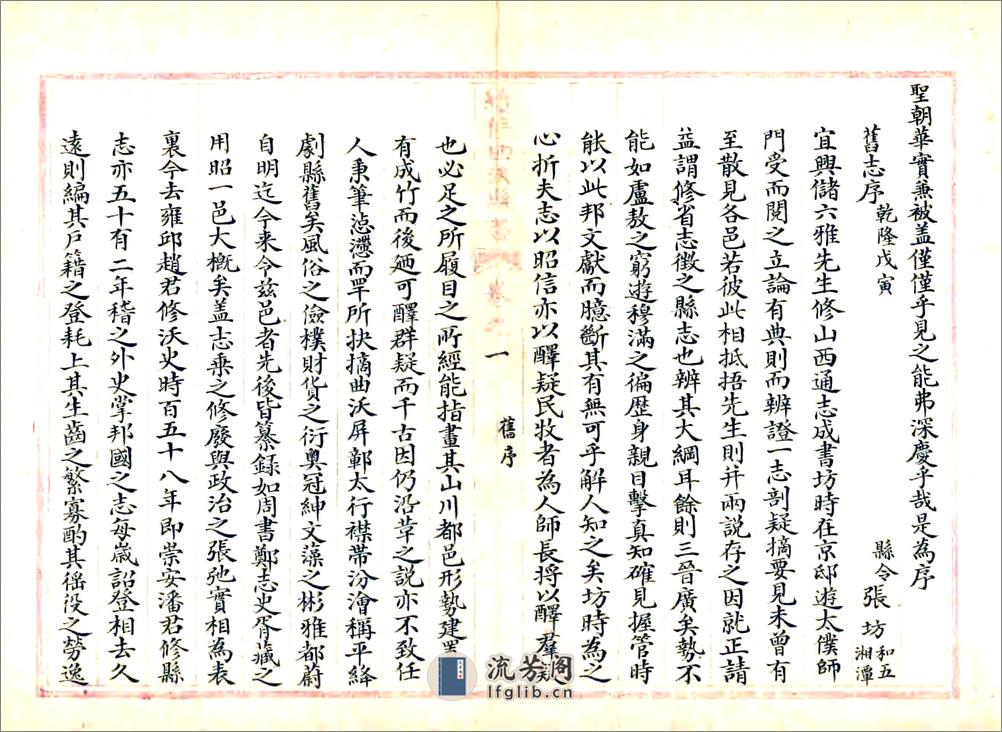 聖朝華實兼被盖僅僅乎見之能弗深慶乎哉是為序
舊志序 乾隆戊寅 縣令張坊 和五 湘潭
宜興儲六雅先生修山西通志成書坊時在京邸遊太僕師
門受而閱之立論有典則而辨證一志剖疑摘要見未曾有
至散見各邑若彼此相抵捂先生則并兩說存之因就正請
益謂修省志徵之縣志也辨其大綱耳餘則三晉廣矣勢不
能如盧敖之窮遊穆滿之徧歷身親目擊真知確見握管時
能以此邦文獻而臆斷其有無可乎解人知之矣坊時為之
心折夫志以昭信亦以醳疑民牧者為人師長将以醳羣
舊序
一
也必足之所履目之所經能指畫其山川都邑形勢建置
有成竹而後廼可醳群疑而千古因仍沿草之說亦不致任
人秉筆懣而罕所抉摘曲沃屏鄣太行襟帶汾澮稱平絳
劇縣舊矣風俗之儉樸財貨之衍奥冠紳文藻之彬雅都蔚
自明迄今来令兹邑者先後皆纂録如周書鄭志史胥蔵之
用昭一邑大概矣盖志乘之修廢與政治之張弛實相為表
裏今去雍邱趙君修沃史時百五十八年即崇安潘君修縣
志亦五十有二年稽之外史掌邦國之志每歲詔登相去久
遠則編其戸籍之登耗上其生齒之繁寡酌其徭役之勞逸
流芳阁
lfglib.cn